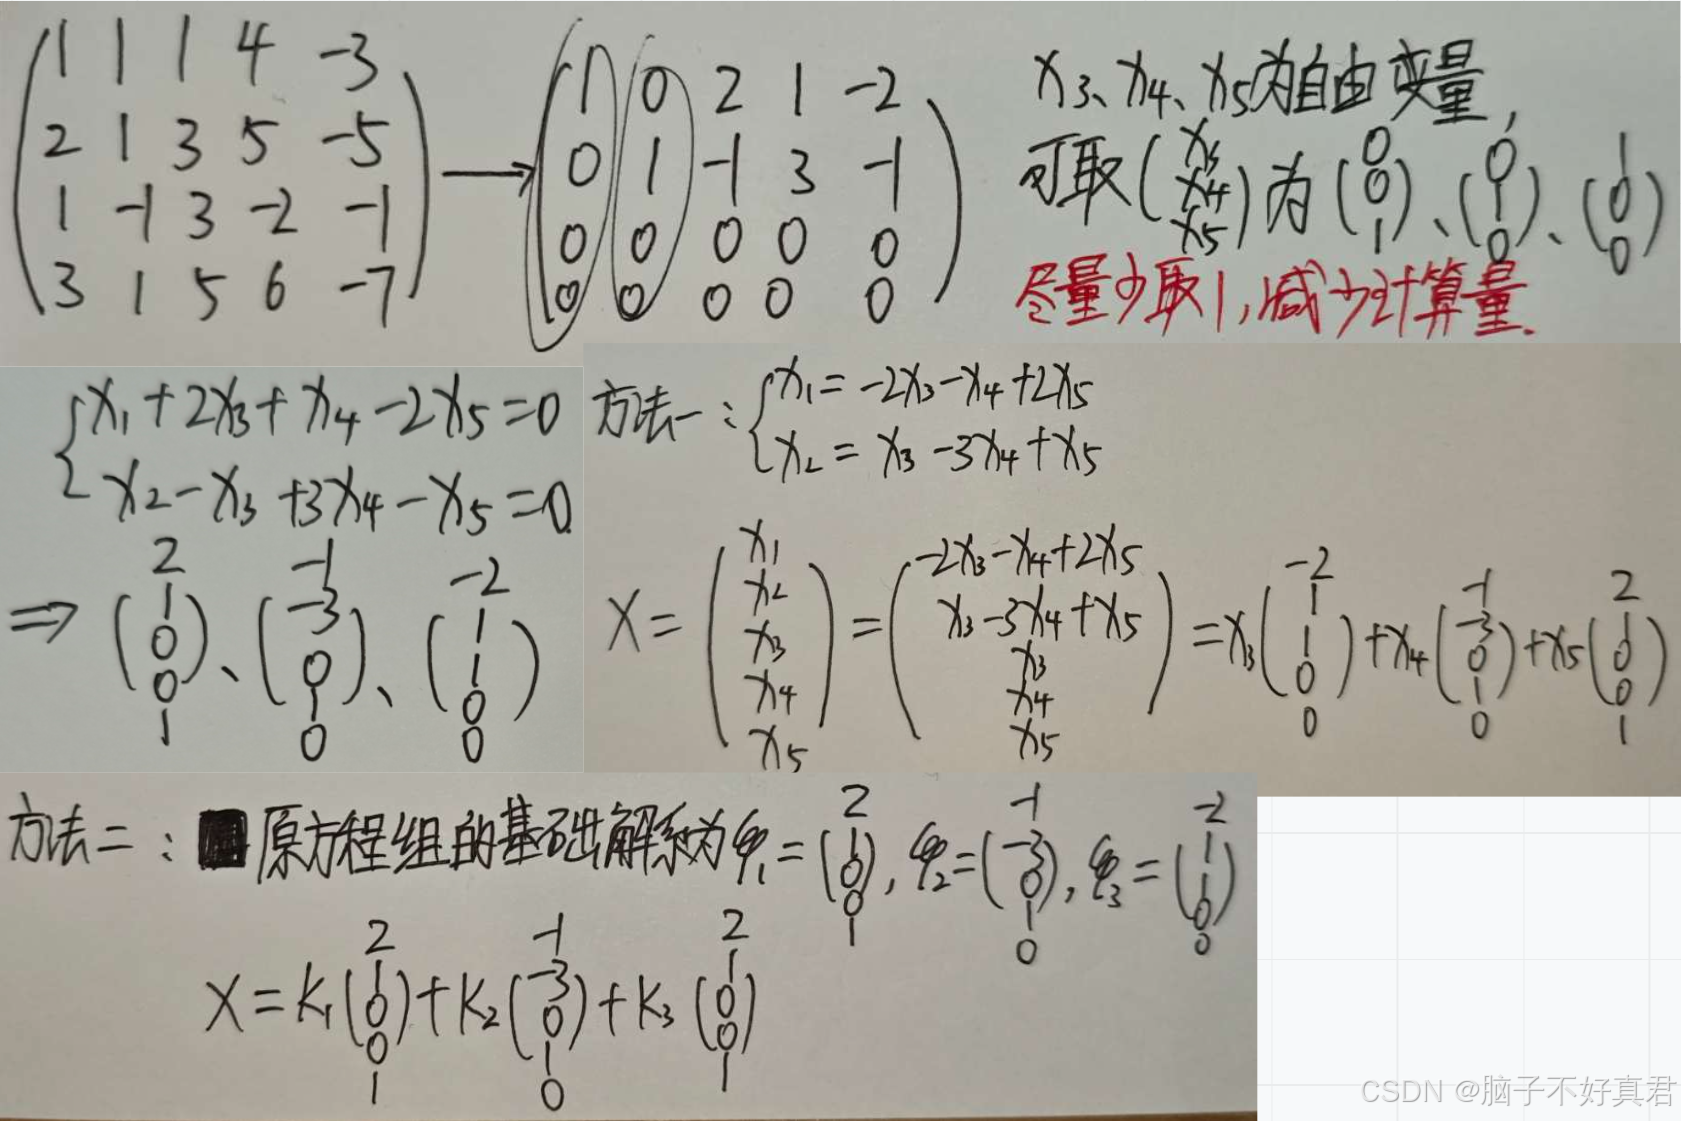 1 1 1 4 -3
2 1 3 5 -5
1 -1 3 -2 -1
3 1 5 6 -7
→
1 0 2 1 -2
0 1 -1 3 -1
0 0 0 0 0
0 0 0 0 0
x₃、x₄、x₅为自由变量,
可取(x₃ x₄ x₅)为(0 0 1)、(0 1 0)、(1 0 0)
尽量少取1,减少计算量.
{x₁+2x₃+x₄-2x₅=0
x₂-x₃+3x₄-x₅=0.
⇒ (2 1 0 0 1)、(-1 -3 0 1 0)、(-2 1 1 0 0)
方法一:{x₁=-2x₃-x₄+2x₅
x₂=x₃-3x₄+x₅
X=(x₁ x₂ x₃ x₄ x₅)=(-2x₃-x₄+2x₅ x₃-3x₄+x₅ x₃ x₄ x₅)=x₃(-2 1 1 0 0)+x₄(-1 -3 0 1 0)+x₅(2 1 0 0 1)
方法二:原方程组的基础解系为φ₁=(2 1 0 0 1),φ₂=(-1 -3 0 1 0),φ₃=(-2 1 1 0 0)
X=K₁(2 1 0 0 1)+K₂(-1 -3 0 1 0)+K₃(2 1 0 0 1)
CSDN @脑子不好真君